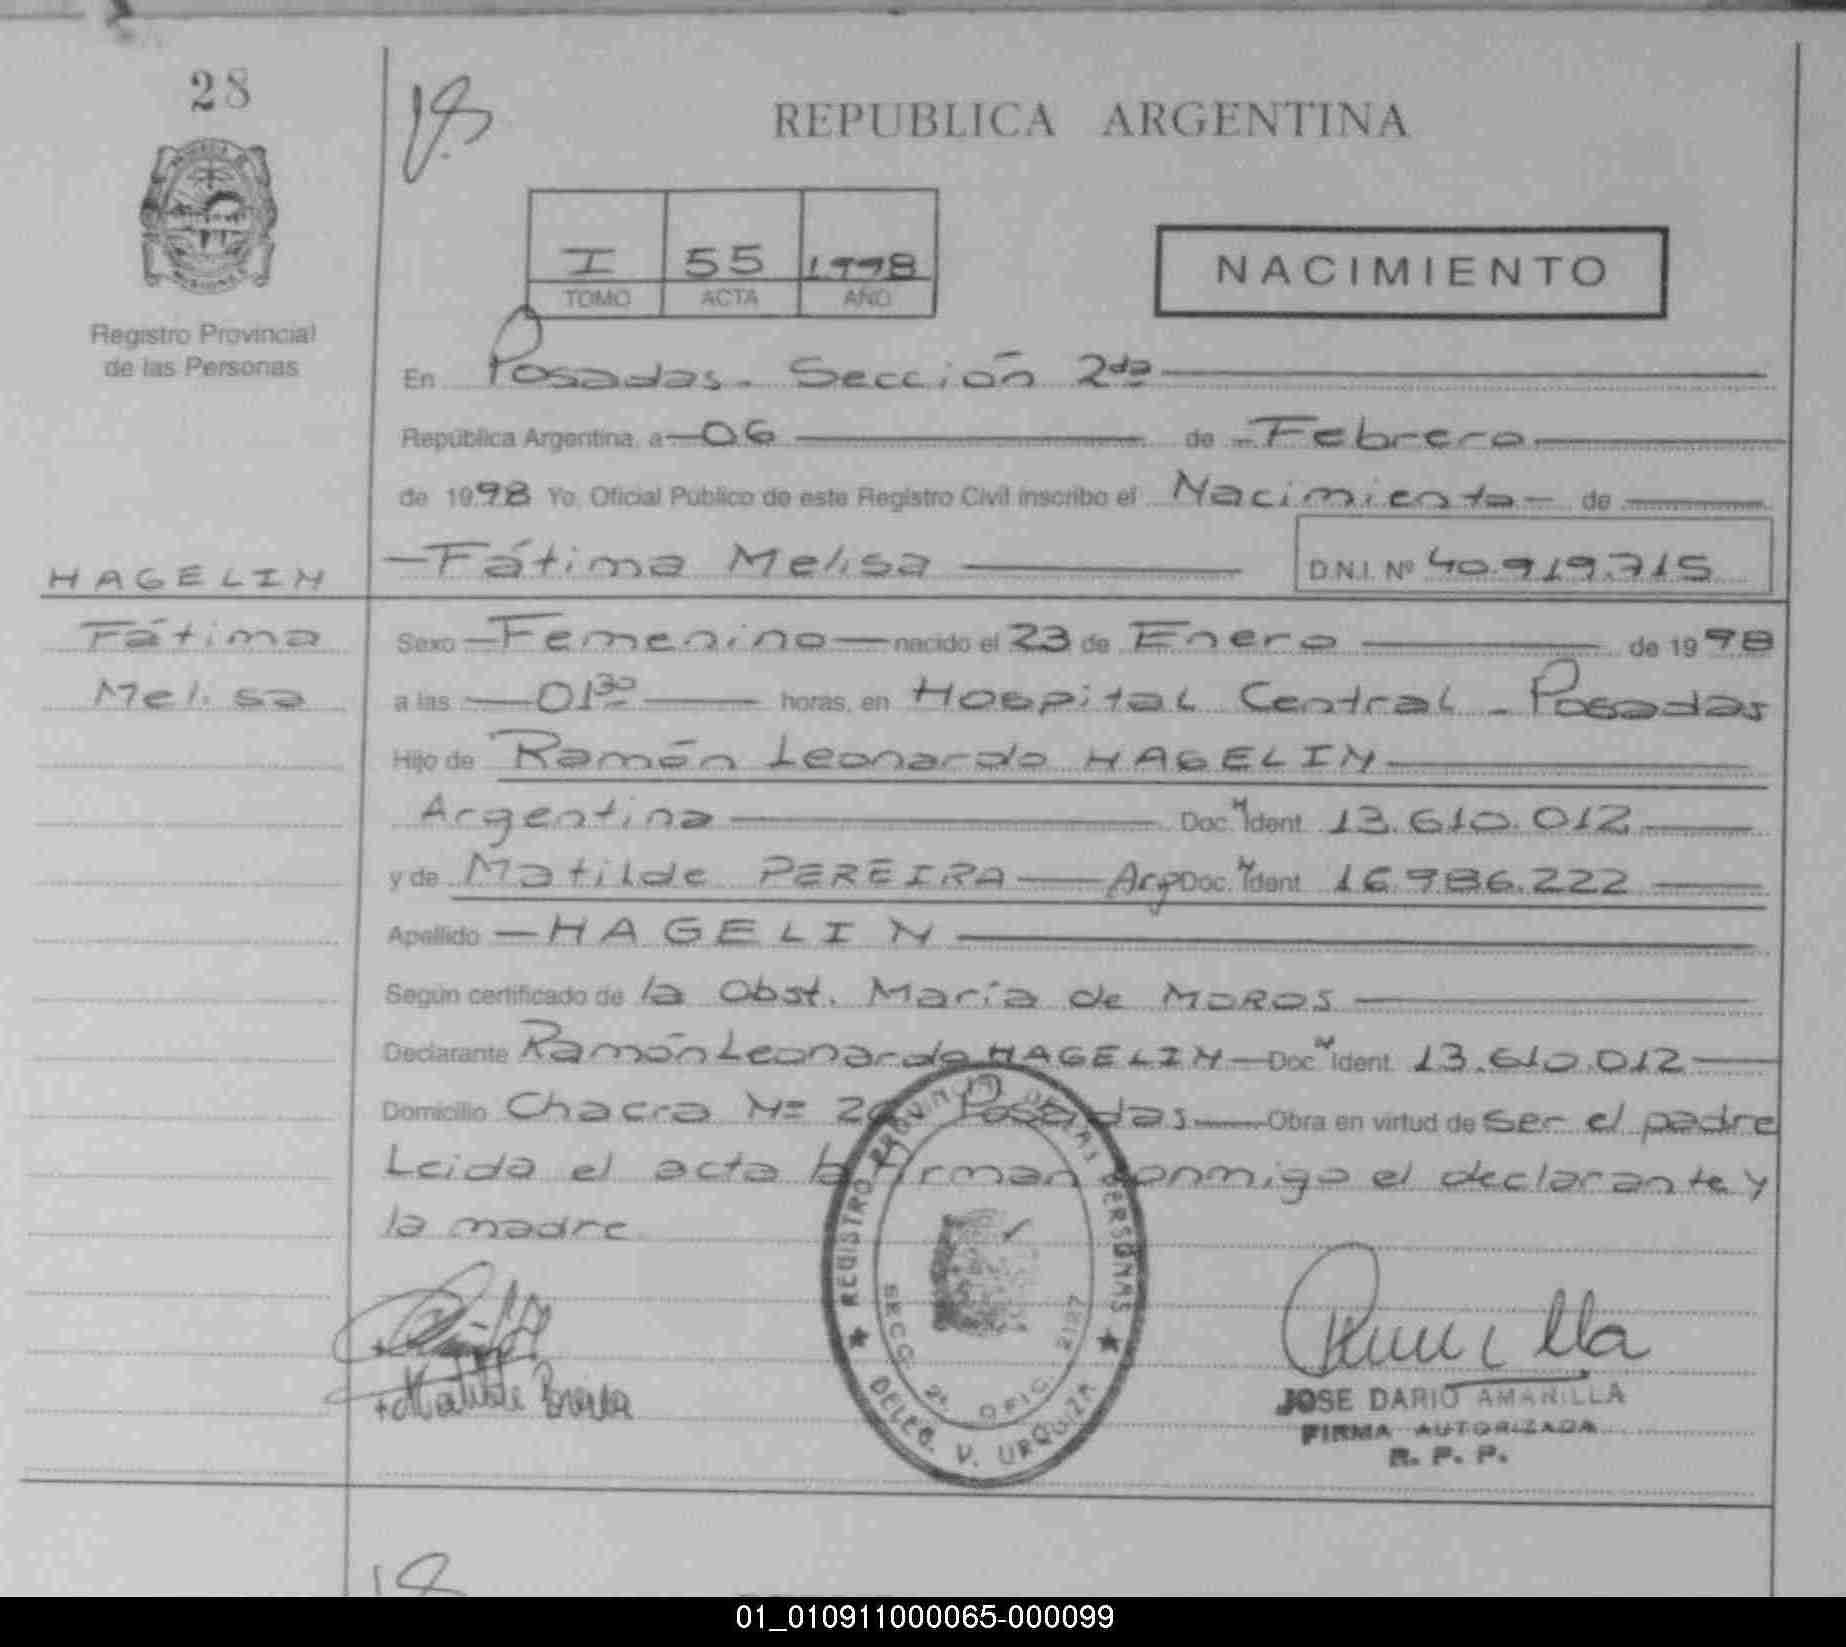 28
18
REPUBLICA ARGENTINA
I 55 1998
TOMO ACTA AÑO
NACIMIENTO
Registro Provincial
de las Personas
En Posadas - Sección 2da
República Argentina, a 06 de Febrero
de 1998 Yo, Oficial Público de este Registro Civil inscribo el Nacimiento de
HAGELIN
Fátima Melisa D.N.I. Nº 40.919.715
Fátima
Sexo Femenino nacido el 23 de Enero de 1998
Melisa
a las 01:30 horas, en Hospital Central - Posadas
Hijo de Ramón Leonardo HAGELIN
Argentina Doc. Ident. 13.610.012
y de Matilde PEREIRA Arg Doc. Ident. 16.986.222
Apellido HAGELIN
Según certificado de la Obst. María de MOROS
Declarante Ramón Leonardo HAGELIN Doc. Ident. 13.610.012
Domicilio Chacra Nº Posadas Obra en virtud de ser el padre
Leida el acta la firman conmigo el declarante y
la madre
REGISTRO PROVINCIAL DE LAS PERSONAS
SECC. 2ª OFIC. 2127
DELEG. V. URQUIZA
Matilde
JOSE DARIO AMARILLA
FIRMA AUTORIZADA
R. P. P.
18
01_010911000065-000099